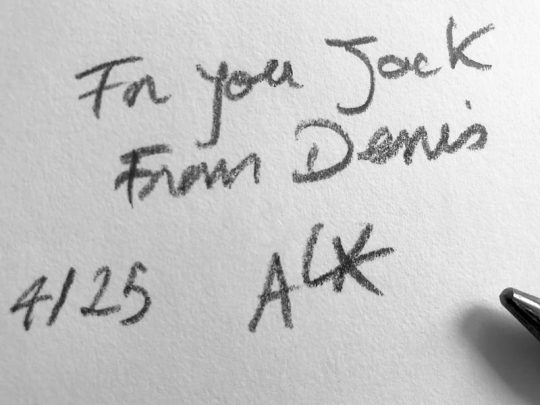 For you Jack
From Denis
4/25 ACK